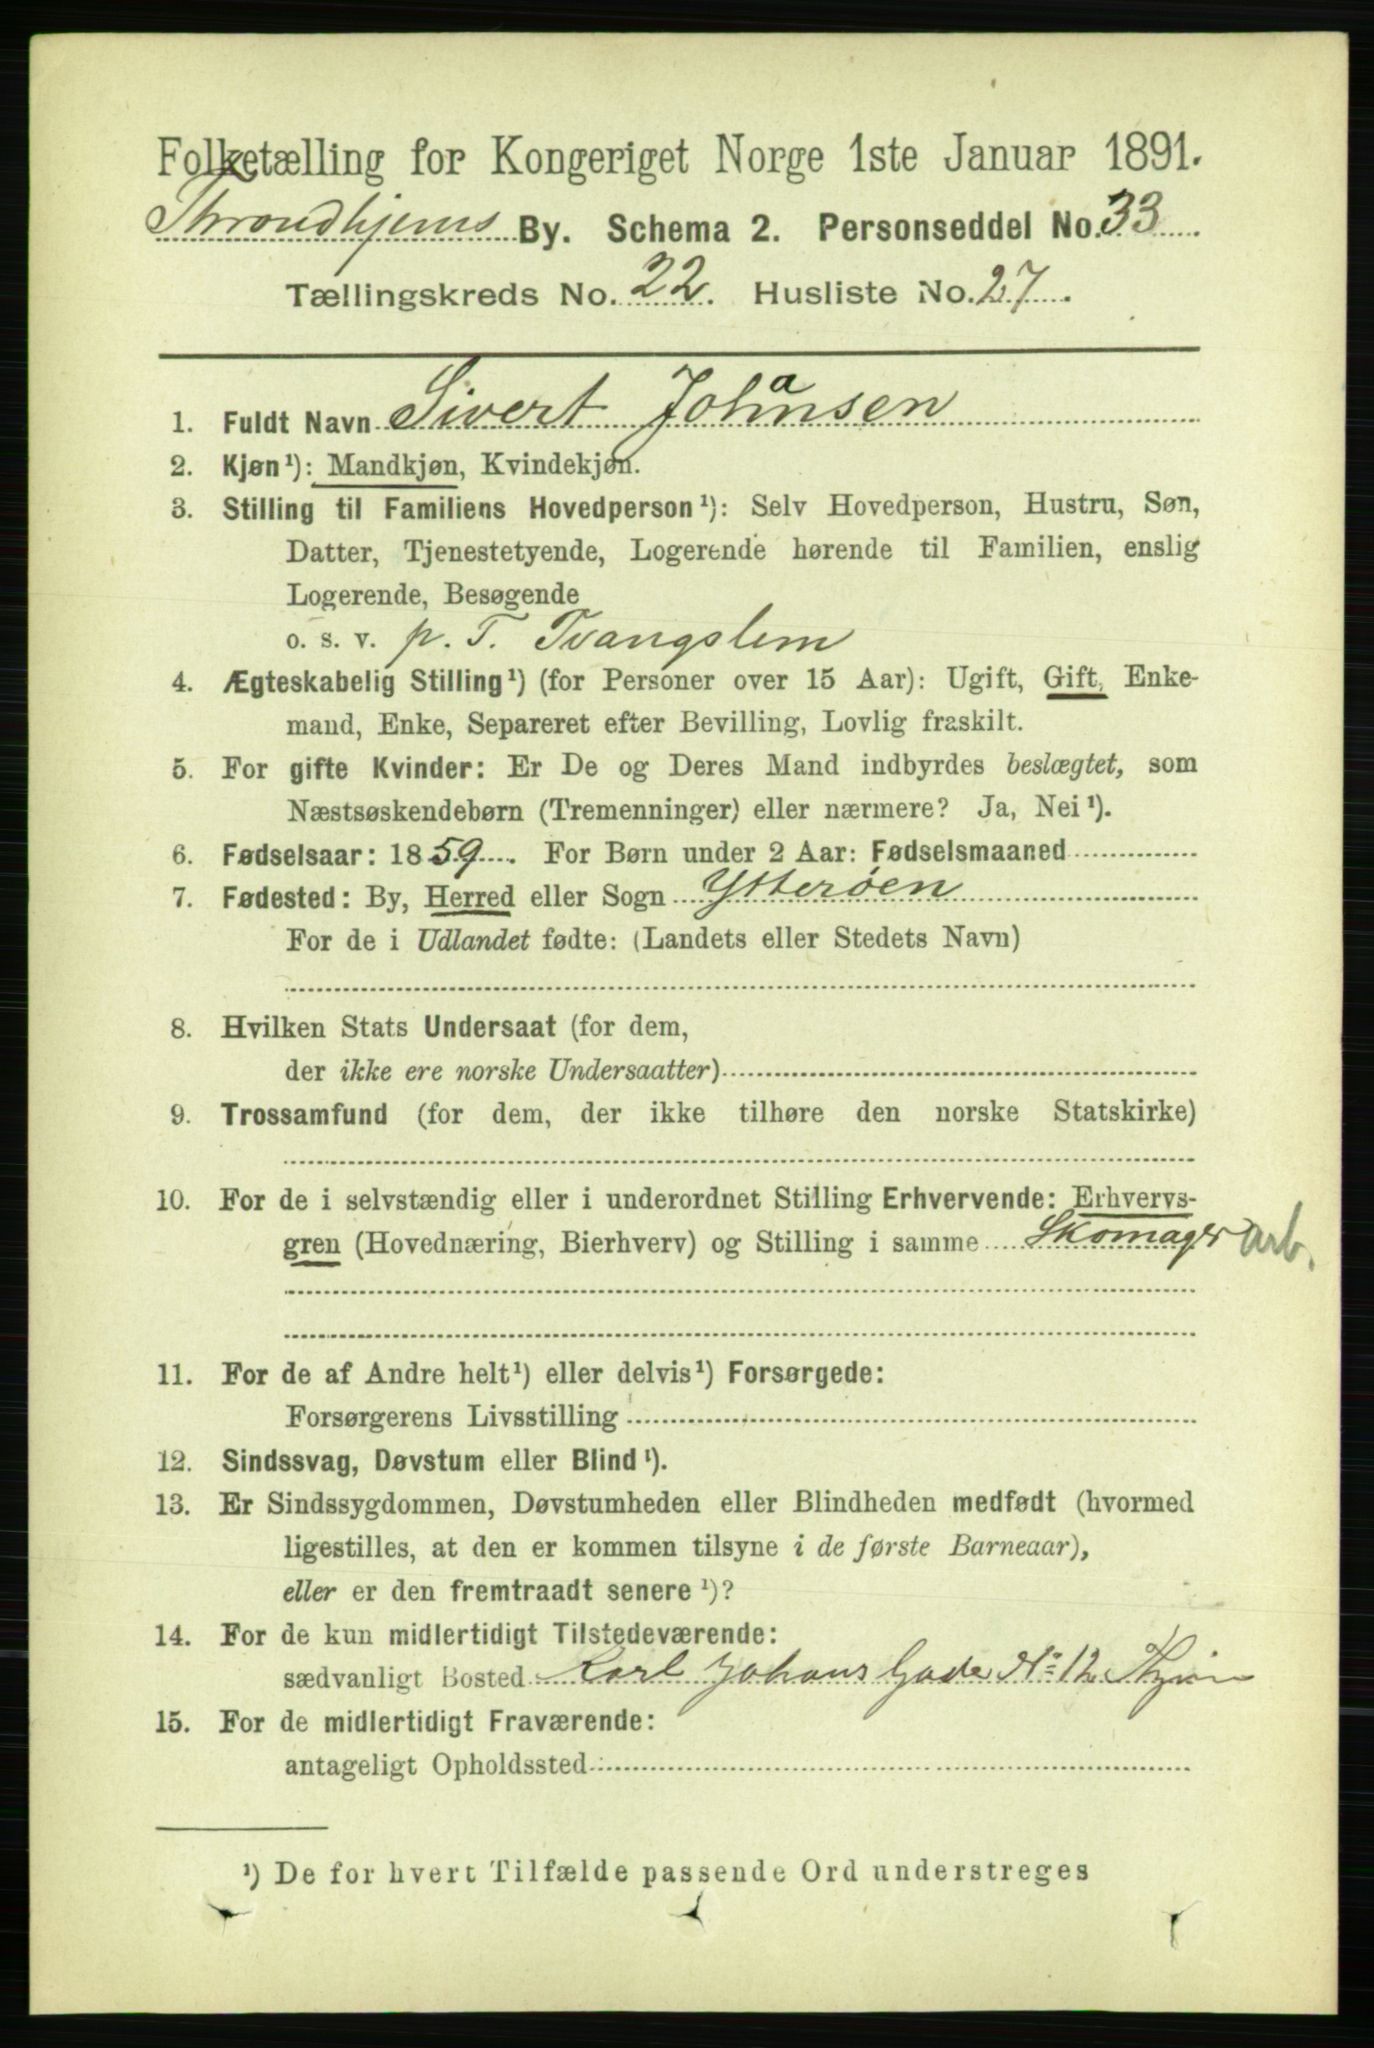 Folketælling for Kongeriget Norge 1ste Januar 1891.
Throndhjems By. Schema 2. Personseddel No. 33
Tællingskreds No. 22. Husliste No. 27.
1. Fuldt Navn Sivert Johansen
2. Kjøn¹): Mandkjøn, Kvindekjøn.
3. Stilling til Familiens Hovedperson¹): Selv Hovedperson, Hustru, Søn,
Datter, Tjenestetyende, Logerende hørende til Familien, enslig
Logerende, Besøgende
o. s. v. p. T. Tvangslem
4. Ægteskabelig Stilling¹) (for Personer over 15 Aar): Ugift, Gift, Enke-
mand, Enke, Separeret efter Bevilling, Lovlig fraskilt.
5. For gifte Kvinder: Er De og Deres Mand indbyrdes beslægtet, som
Næstsøskendebørn (Tremenninger) eller nærmere? Ja, Nei¹).
6. Fødselsaar: 1859. For Børn under 2 Aar: Fødselsmaaned
7. Fødested: By, Herred eller Sogn Ytterøen
For de i Udlandet fødte: (Landets eller Stedets Navn)
8. Hvilken Stats Undersaat (for dem,
der ikke ere norske Undersaatter)
9. Trossamfund (for dem, der ikke tilhøre den norske Statskirke)
10. For de i selvstændig eller i underordnet Stilling Erhvervende: Erhvervs-
gren (Hovednæring, Bierhverv) og Stilling i samme Skomager arb.
11. For de af Andre helt¹) eller delvis¹) Forsørgede:
Forsørgerens Livsstilling
12. Sindssvag, Døvstum eller Blind¹).
13. Er Sindssygdommen, Døvstumheden eller Blindheden medfødt (hvormed
ligestilles, at den er kommen tilsyne i de første Barneaar),
eller er den fremtraadt senere¹)?
14. For de kun midlertidigt Tilstedeværende:
sædvanligt Bosted Karl Johans Gade No 12 Thjem
15. For de midlertidigt Fraværende:
antageligt Opholdssted
¹) De for hvert Tilfælde passende Ord understreges